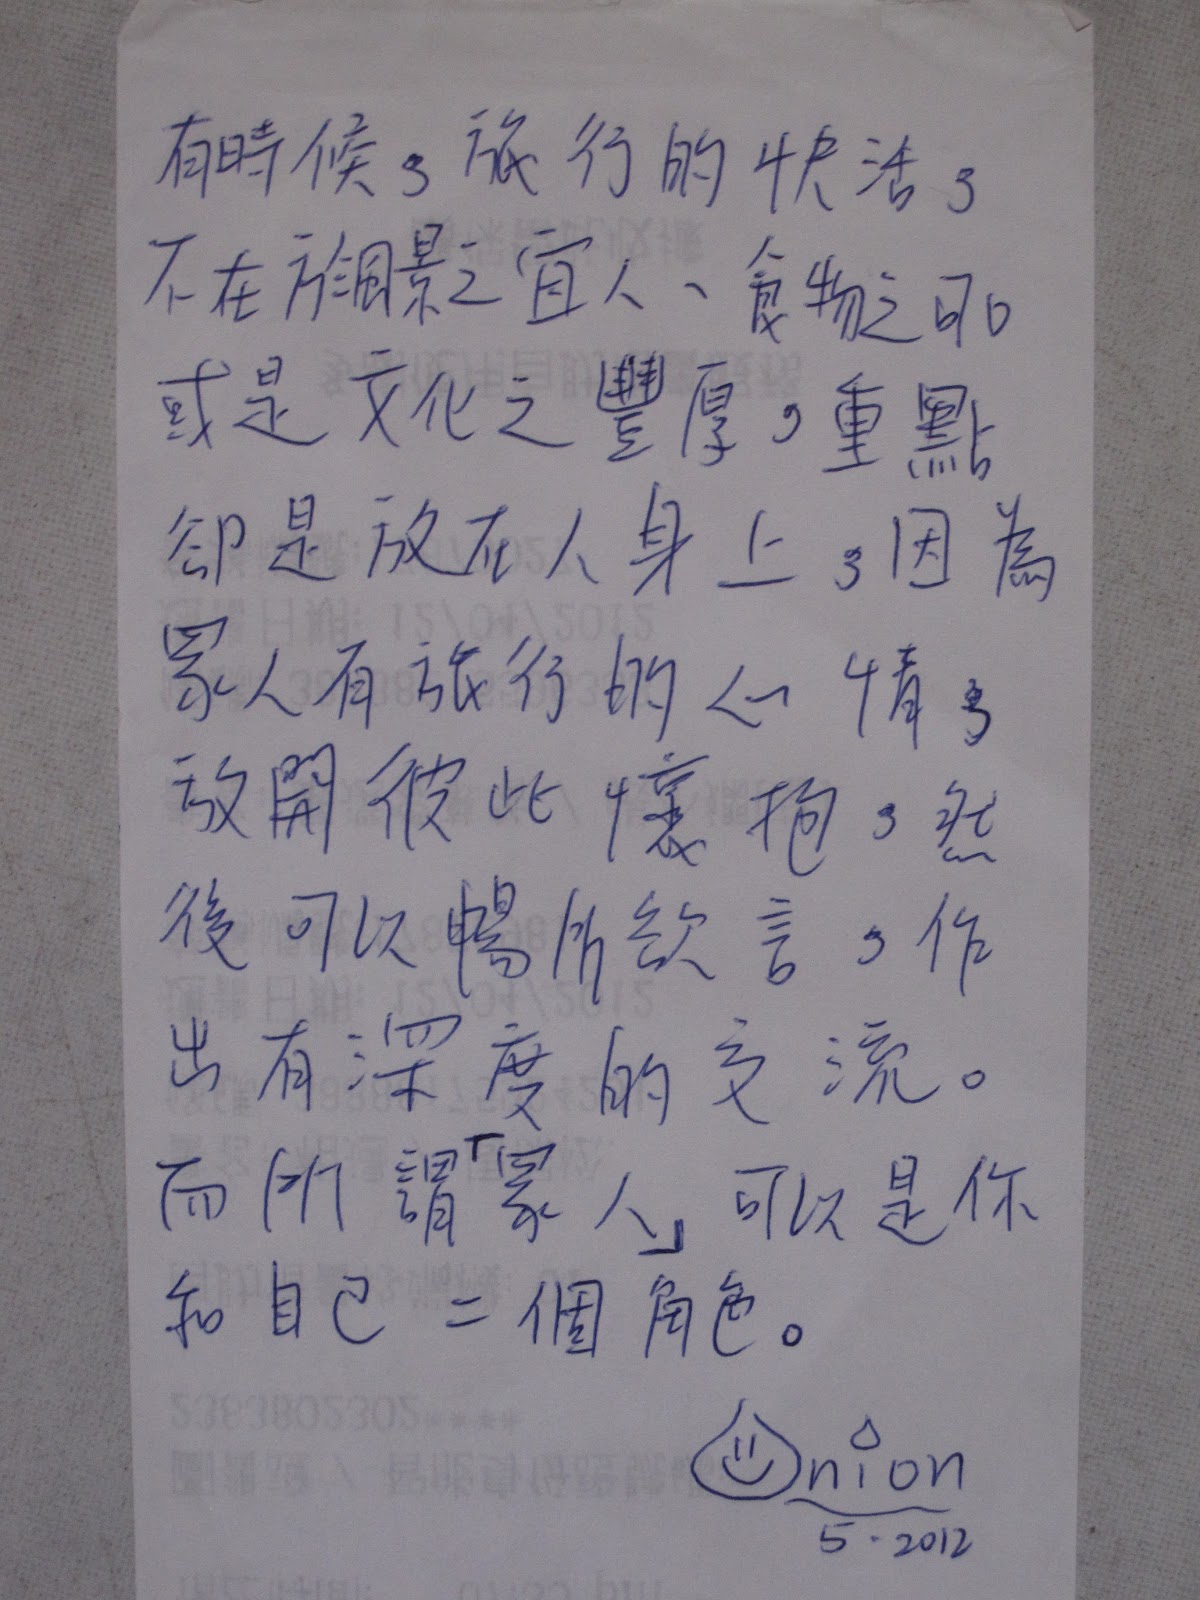 有時候，旅行的快活，
不在於風景之宜人、食物之可口
或是文化之豐厚，重點
卻是放在人身上，因為
家人有旅行的心情，
放開彼此懷抱，然
後可以暢所欲言，作
出有深度的交流。
而所謂「家人」可以是你
和自己二個角色。
Onion
5.2012